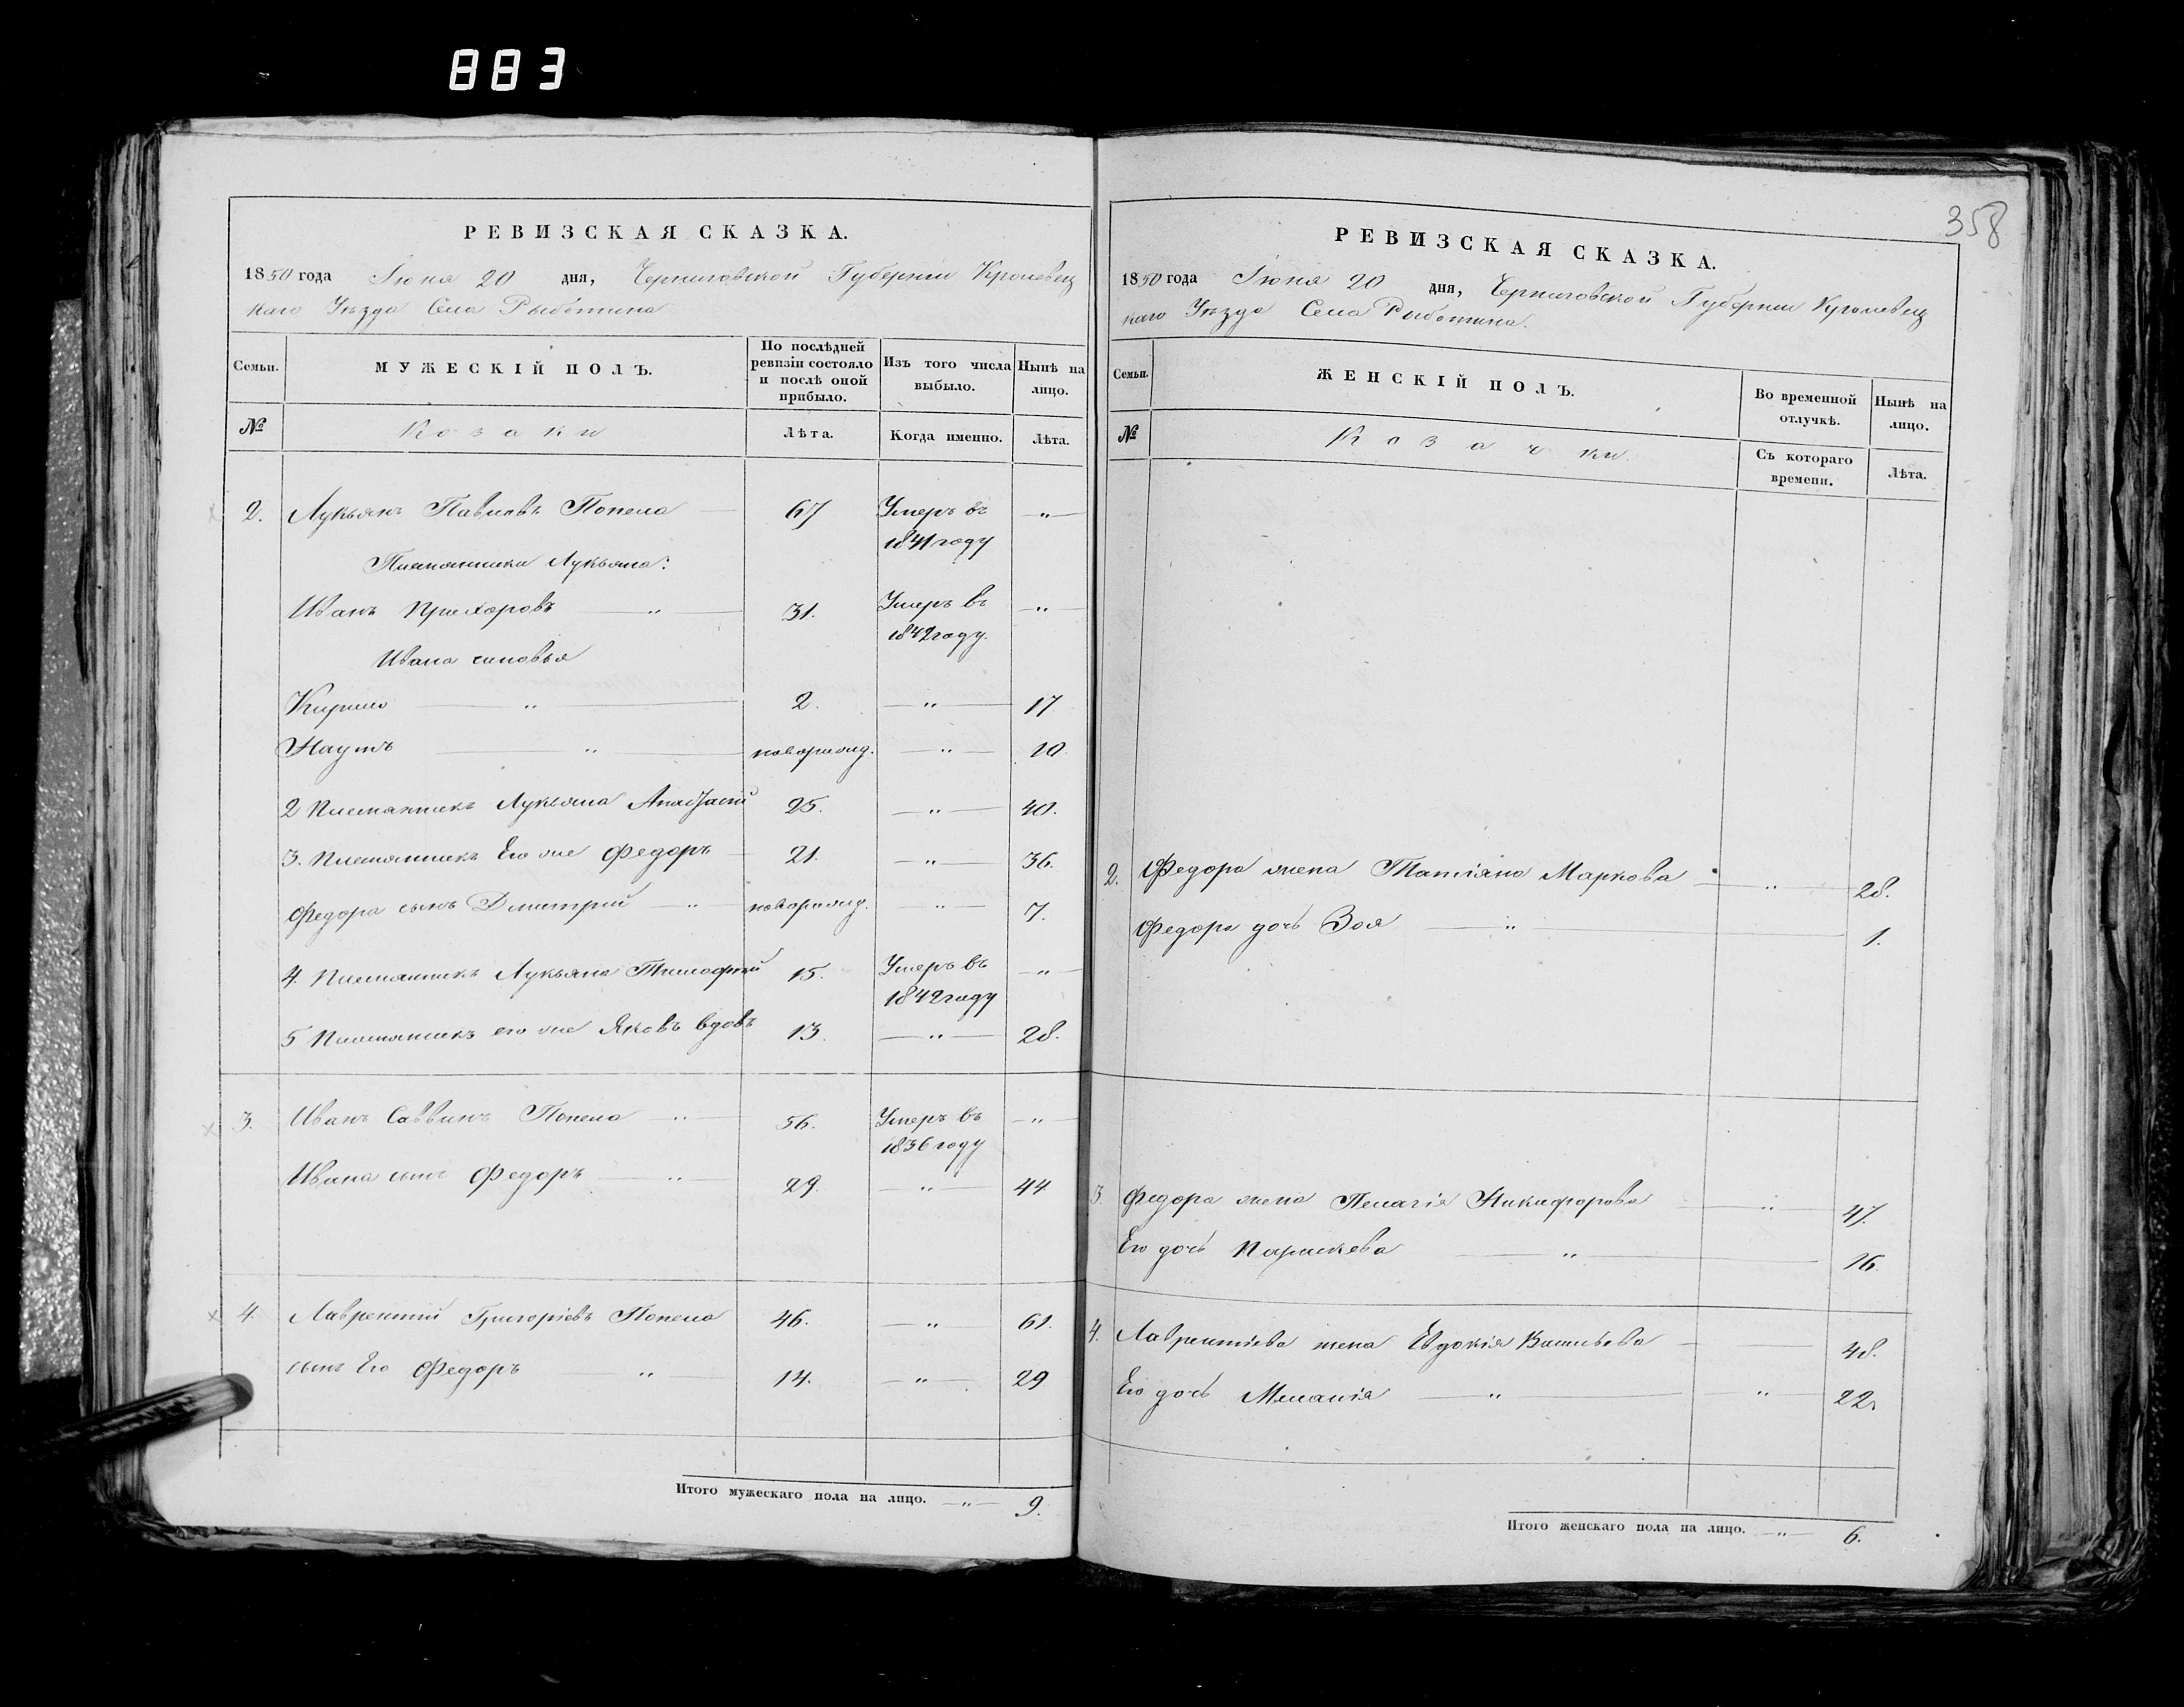 883
РЕВИЗСКАЯ СКАЗКА.
1850 года Іюня 20 дня, Черниговской Губерніи Кролевец
каго Уѣзда Села Рыботина
Семьи.
МУЖЕСКІЙ ПОЛЪ.
По послѣдней
ревизіи состояло
и послѣ оной
прибыло.
Изъ того числа
выбыло.
Нынѣ на
лицо.
№
Козаки
Лѣта.
Когда именно.
Лѣта.
2. Лукьянъ Павловъ Попела 67 Умеръ въ „
1841 году
Племянники Лукьяна:
Иванъ Прихоровъ „ 31. Умеръ въ „
1842 году.
Ивана синовья
Кирило „ 2. „ 17
Наумъ „ноборожд. „ 10
2 Племянникъ Лукьяна Анастасій 25. „ 40.
3. Племянникъ Его же Федоръ 21. „ 36.
Федора сынъ Дмитрій „ новорожд. „ 7.
4. Племянникъ Лукьяна Тимофей 15. Умеръ въ „
1842 году
5 Племянникъ его же Яковъ вдовъ 13. „ 28.
3. Иванъ Саввинъ Попела „ 56. Умеръ въ „
1836 году
Ивана сынъ Федоръ „ 29. „ 44
4. Лаврентій Григоріевъ Попела 46. „ 61.
сынъ Его Федоръ „ 14. „ 29
Итого мужескаго пола на лицо. „ 9.
358
РЕВИЗСКАЯ СКАЗКА.
1850 года Іюня 20 дня, Черниговской Губерніи Кролевец
каго Уѣзда Села Рыботина.
Семьи.
ЖЕНСКІЙ ПОЛЪ.
Во временной
отлучкѣ.
Нынѣ на
лицо.
№
Козачки
Съ котораго
времени.
Лѣта.
2. Федора жена Татіана Маркова „ 28.
Федора дочь Зоя „ 1.
3. Федора жена Пелагія Никифорова „ 47.
Его дочь Параскева „ 16.
4. Лаврентіева жена Евдокія Васильева 48.
Его дочь Меланія „ „ 22.
Итого женскаго пола на лицо. „ 6.